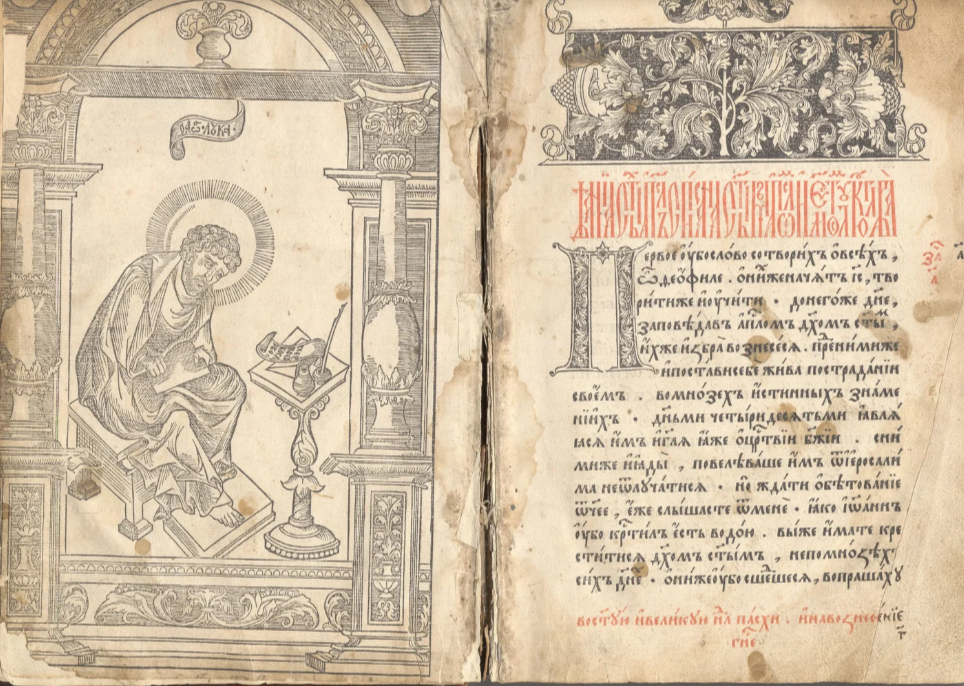 ст҃ы лꙋка
Первое ᲂу҆бо слово сотвори́хъ ѡ҆ всѣ́хъ ,
ѽ , ѳео́филе . ѡ҆ ни́хже начѧ́тъ і҆с҃ , тво
ри́ти же и҆ ᲂу҆чи́ти . до него́же дн҃е ,
заповѣ́давъ а҆пⷭ҇ломъ дх҃омъ ст҃ы́м ,
и҆́хже и҆збра̀ вознесе́сѧ . пред ни́миже
и҆ поста́ви себе жи́ва по страда́нїи
свое́мъ . во мно́зехъ и҆́стинныхъ зна́ме
нїи҆хъ . дн҃ьми четы́ридесѧтьми ꙗ҆влѧ
ꙗсѧ и҆̀мъ и҆ гл҃ѧ ꙗ҆́же ѡ҆ црⷭ҇твїи бж҃їи . сни́
миже и҆ ꙗ҆ды̀ , повелѣва́ше и҆̀мъ ѿ і҆еросали́
ма не ѿлꙋча́тисѧ . но жда́ти ѡ҆бѣтова́нїе
ѿч҃ее , є҆́же слы́шасте ѿ менѐ . ꙗ҆́ко і҆ѡ҃а́ннъ
ᲂу҆́бо крⷭ҇ти́лъ є҆́сть водо́ю . вы́ же и҆́мате кре
сти́тисѧ дх҃омъ ст҃ы́мъ , не по мно́зѣхъ
си́хъ дн҃е . ѻ҆ни́же ᲂу҆́бо сше́дшесѧ , вопраша́хꙋ
во ст҃ꙋю и҆ вели́кꙋю нⷣлю па́схи . и҆ на вознесе́нїе
гнⷭ҇е
за҃